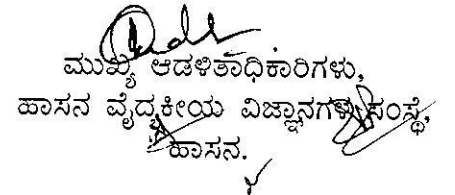 ಮುಖ್ಯ ಆಡಳಿತಾಧಿಕಾರಿಗಳು,
ಹಾಸನ ವೈದ್ಯಕೀಯ ವಿಜ್ಞಾನಗಳು ಸಂಸ್ಥೆ,
ಹಾಸನ.